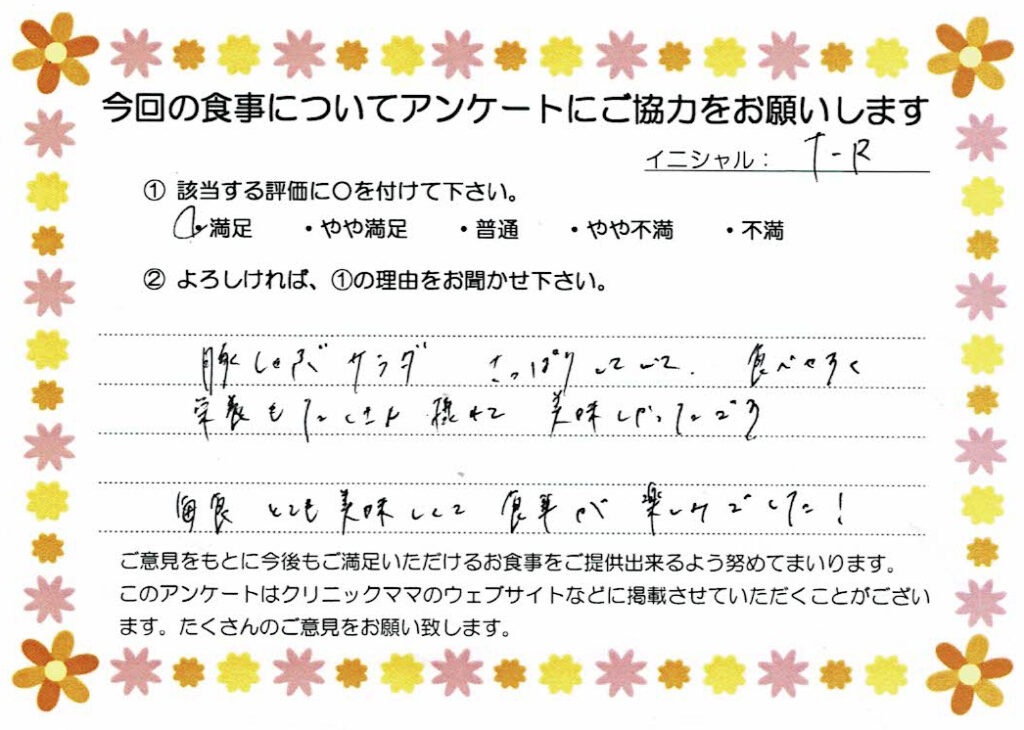 今回の食事についてアンケートにご協力をお願いします
イニシャル： T-R
① 該当する評価に〇を付けて下さい。
・満足 ・やや満足 ・普通 ・やや不満 ・不満
② よろしければ、①の理由をお聞かせ下さい。
豚しゃぶサラダ さっぱりしていて、食べやすく
栄養もたくさん 摂れて 美味しかったです
毎食 とても美味しくて 食事が 楽しみでした！
ご意見をもとに今後もご満足いただけるお食事をご提供出来るよう努めてまいります。
このアンケートはクリニックママのウェブサイトなどに掲載させていただくことがござい
ます。たくさんのご意見をお願い致します。